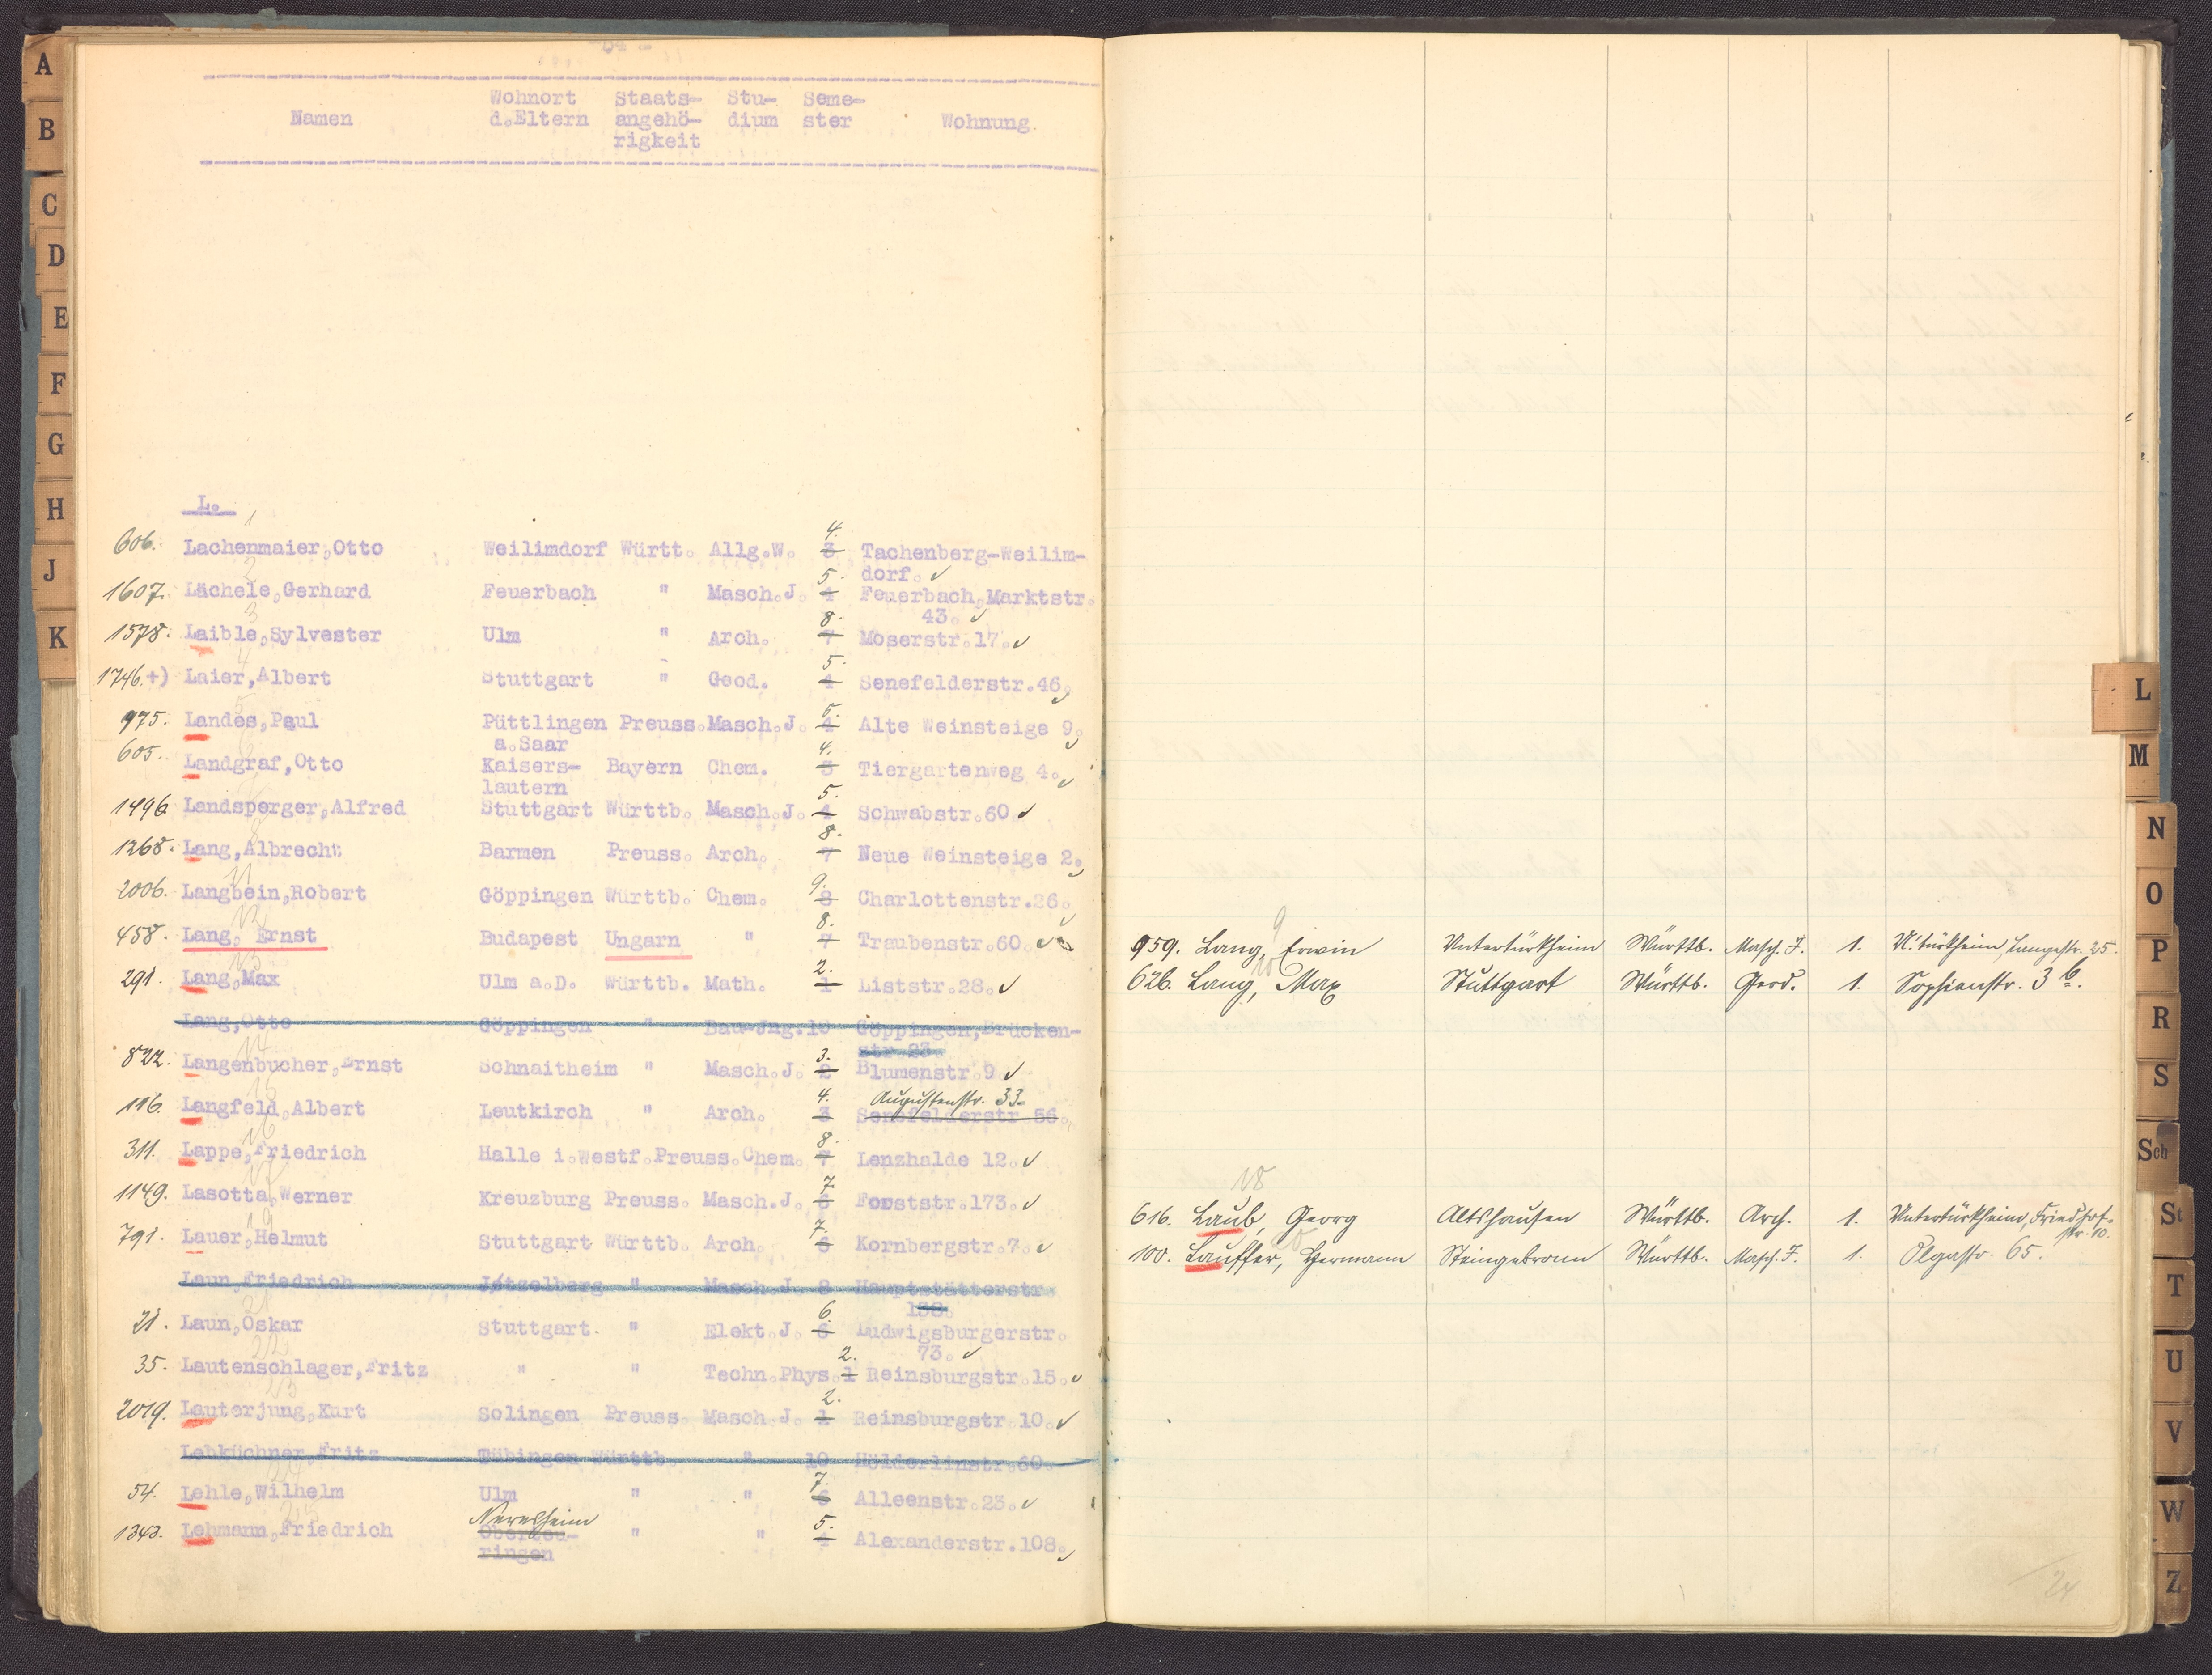 - 64 -
Namen Wohnort d.Eltern Staats-angehö-rigkeit Stu-dium Seme-ster Wohnung.
L.
606. Lachenmaier,Otto Weilimdorf Württ. Allg.W. 4. 3 Tachenberg-Weilim-
dorf.
1607. Lächele,Gerhard Feuerbach " Masch.J. 5. 4 Feuerbach,Marktstr.
43.
1578. Laible,Sylvester Ulm " Arch. 8. 7 Moserstr.17.
1746.+) Laier,Albert Stuttgart " Geod. 5. 4 Senefelderstr.46.
975. Landes,Paul Püttlingen Preuss.Masch.J. 5. 4 Alte Weinsteige 9.
a.Saar
605. Landgraf,Otto Kaisers- Bayern Chem. 4. 3 Tiergartenweg 4.
lautern
1496. Landsperger,Alfred Stuttgart Württb. Masch.J. 5. 4 Schwabstr.60
1268. Lang,Albrecht Barmen Preuss. Arch. 8. 7 Neue Weinsteige 2.
2006. Langbein,Robert Göppingen Württb. Chem. 9. 8 Charlottenstr.26.
458. Lang, Ernst Budapest Ungarn " 8. 7 Traubenstr.60.
291. Lang,Max Ulm a.D. Württb. Math. 2. 1 Liststr.28.
Lang,Otto Göppingen " Bau-Jng.10 Göppingen,Brücken-
str 23
822. Langenbucher,Ernst Schnaitheim " Masch.J. 3. 2 Blumenstr.9
116. Langfeld,Albert Leutkirch " Arch. 4. 3 Augustenstr. 33.
Senefelderstr 56.
311. Lappe,Friedrich Halle i.Westf.Preuss.Chem. 8. 7 Lenzhalde 12.
1149. Lasotta,Werner Kreuzburg Preuss. Masch.J. 7. 6 Forststr.173.
791. Lauer,Helmut Stuttgart Württb. Arch. 7. 6 Kornbergstr.7.
Laun,Friedrich Jätzelberg " Masch.J. 8 Hauptstätterstr
138.
21. Laun,Oskar Stuttgart. " Elekt.J. 6. 6 Ludwigsburgerstr.
73.
35. Lautenschlager,Fritz " " Techn.Phys. 2. 1 Reinsburgstr.15.
2019. Lauterjung,Kurt Solingen Preuss. Masch.J. 2. 1 Reinsburgstr.10.
Lebküchner,Fritz Tübingen Württb. " 10 Hölderlinstr.60.
54. Lehle,Wilhelm Ulm " " 7. 6 Alleenstr.23.
Neresheim
1343. Lehmann,Friedrich " " 5. 4 Alexanderstr.108.
ringen
9
959. Lang, Erwin Untertürkheim Württb. Masch. J. 1. U.'türkheim, Langestr. 25.
10
626. Lang, Max Stuttgart Württb. Geod. 1. Sophienstr. 3 b.
18
616. Laub, Georg Altshausen Württb. Arch. 1. Untertürkheim, Friedhof-
str. 10.
100. Lauffer, Hermann Steingebronn Württb. Masch. J. 1. Olgastr. 65.
24
A
B
C
D
E
F
G
H
J
K
L
M
N
O
P
R
S
Sch
St
T
U
V
W
Z